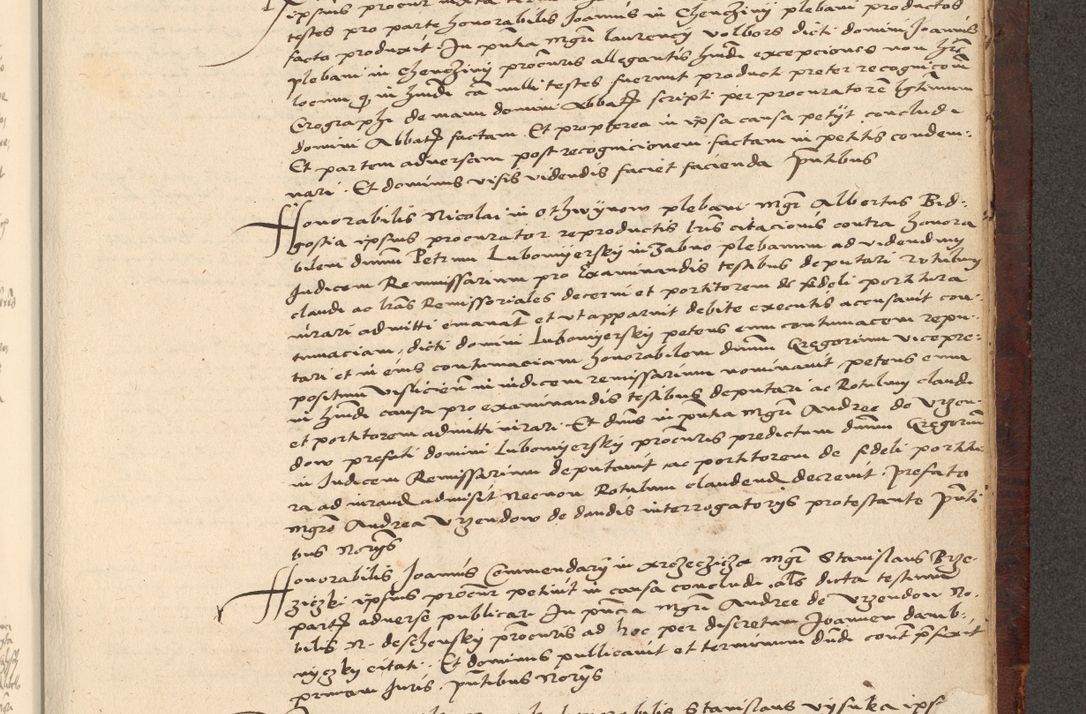 ipsius procur iuxta
testes pro parte honorabilis Joannis in Chencziny plebani productos
facto produxit. In pntia Mgri laurency volbors dicti domini Joannis
plebani in Chencziny procuris allegantis hmdi excepciones non hre
locum q in hmdi ca nulli testes fuerunt product preter recognicom
Crographi de manu domini Abbatis scripti per procuratorem lgtimum
domini Abbatis factam Et propterea in ipsa causa petyt concludi
Et partem adversam post recognicionem factam in petitis condem-
nari. Et dominus visis videndis faciet facienda pntibus
Honorabilis Nicolai in Othwynow plebani Mgr Albertus Bid-
gostia ipsius procurator reproductis lris citacionis contra honora
bilem dnum Petrum Lubomyersky in Zabno plebanum ad videndum
Judicem Remissarium pro examinandis testibus deputari rotulum
claudi ac lras Remissoriales decerni et portitorem de fideli portitura
iurari admitti emanat et ut apparuit debite executis accusavit con-
tumaciam, dicti domini Lubomyersky petens eum contumacem repu-
tari et in eius contumaciam honorabilem dnum Gregorium vicepre-
positum Visliciem in iudicem remissarium nominavit, petens eum
in hmdi causa pro examinandis testibus deputari ac Rotulum claudi
et portitorem admitti iurari. Et dnus in pntia Mgri Andree de Vrzen-
dow prefati domini Lubomyersky procuris predictum dnum Gregorium
in Judicem Remissarium deputavit ac portitorem de fideli portitu
ra ad iurand admisit Necnon Rotulum claudend decrevit. Prefato
Mgro Andrea Vrzendow de dandis interrogatoriis protestante pnti
bus Norys
Honorabilis Joannis Commendary in Mgr Stanislaus Brze-
ziczki ipsius procur petivit in causa concludi als dicta testium
partis adverse publicari In pncia Mgri Andree de Vrzendow No-
bilis N. deschensky procuris ad hoc per discretum Joannem damb-
nyczky citati. Et dominus publicavit et terminum dndi cont prefixit
primam Juris. pntibus Norys
Stanislaus vysuka ips